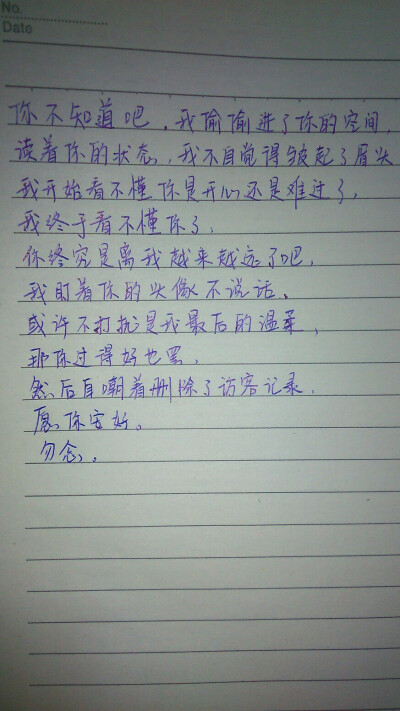 No.
Date
你不知道吧，我偷偷进了你的空间，
读着你的状态，我不自觉得皱起了眉头
我开始看不懂你是开心还是难过了，
我终于看不懂你了，
你终究是离我越来越远了吧，
我盯着你的头像不说话、
或许不打扰是我最后的温柔，
那你过得好也罢，
然后自嘲着删除了访客记录，
愿你安好。
勿念，。